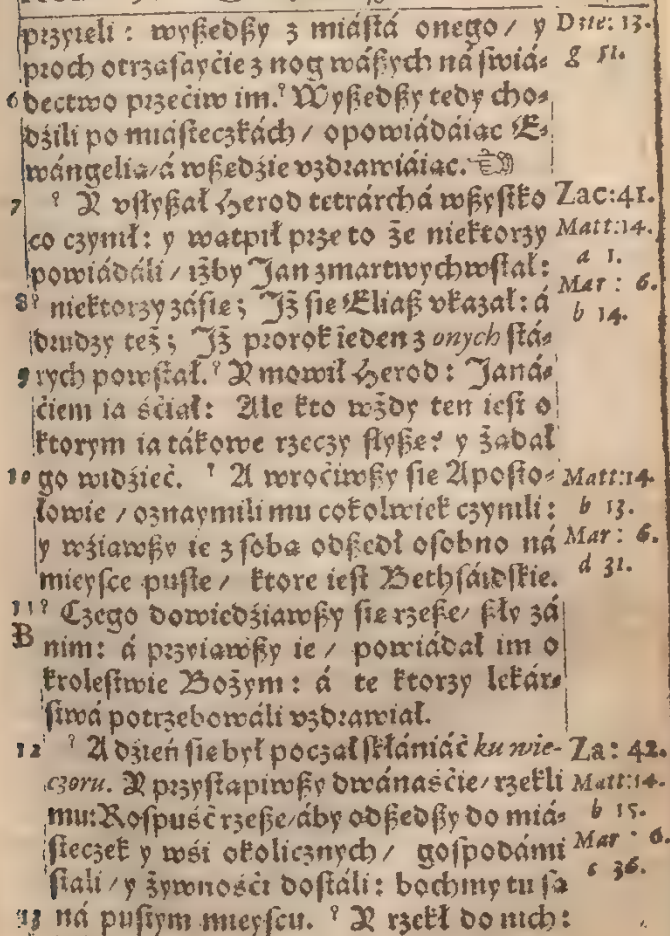 przyięli : wyßedßy z miástá onego / y Dzie: 13.
proch otrząsayćie z nog wáßych ná swiá⸗ g 51.
6 dectwo przećiw im. Wyßedßy tedy cho⸗
dźili po miásteczkách / opowiádáiąc E⸗
wángelią / á wßędźie vzdrawiáiąc. ☜
7 Y vsłyßał Herod tetrárchá wßystko Zac: 41.
co czynił: y wątpił prze to że niektorzy Matt: 14.
powiádáli / iżby Jan zmartwychwstał: a 1.
Mar : 6.
8 niektorzy záśie ; Jż sie Eliaß vkazał: á b 14.
drudzy też ; Jż prorok ieden z onych stá⸗
9 rych powstał. Y mowił Herod : Janá⸗
ćiem ia śćiał: Ale kto wżdy ten iest o
ktorym ia tákowe rzeczy słyße? y żądał
10 go widźieć. A wroćiwßy sie Aposto⸗ Matt: 14.
łowie / oznaymili mu cokolwiek czynili : b 13.
y wźiąwßy ie z sobą odßedł osobno ná Mar : 6.
mieysce puste / ktore iest Bethsáidskie. d 31.
11 Czego dowiedźiawßy sie rzeße / ßły zá
B nim: á przyiąwßy ie / powiádał im o
krolestwie Bożym : á te ktorzy lekár⸗
stwá potrzebowáli vzdrawiał.
12 A dźień sie był poczał skłániáć ku wie- Za: 42.
czoru. Y przystąpiwßy dwánaśćie / rzekli Matt: 14.
mu: Rospuść rzeße / áby odßedßy do miá⸗ b 15.
steczek y wśi okolicznych / gospodámi Mar : 6.
stali / y żywnośći dostáli : bochmy tu są c 36.
13 ná pustym mieyscu. Y rzekł do nich :